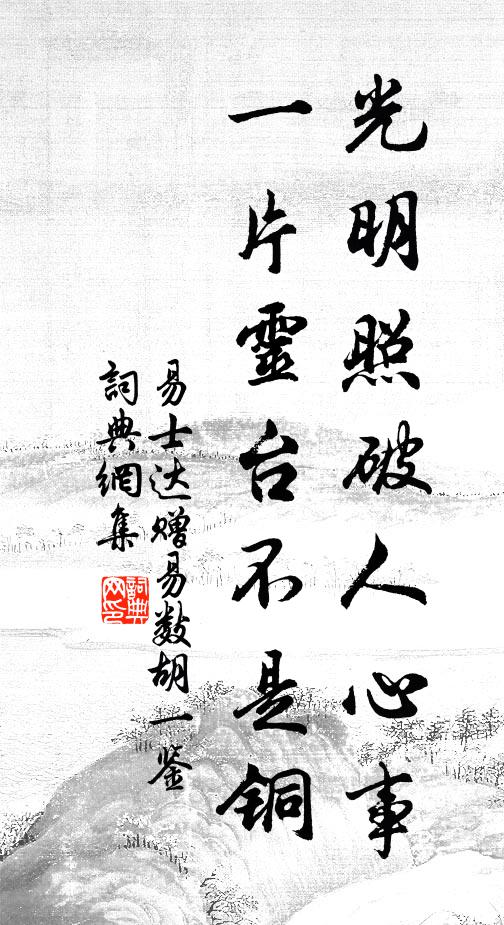 光明照破人心事
一片靈台不是铜
易士达赠易数胡一鉴
詞典網集
詞典网印